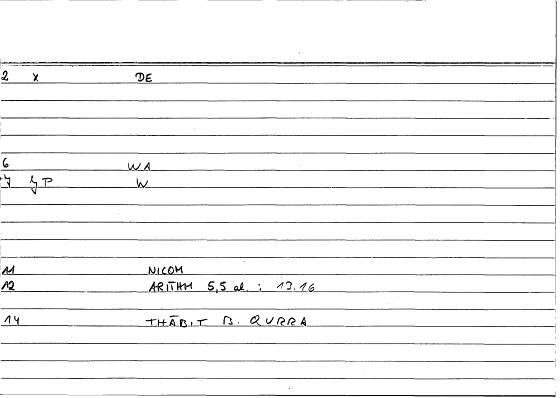 2 x DE
6 WA
7 P W
11 NICOM
12 ARITHM 5,5 al. : 13.16
14 THĀBIT B. QURRA